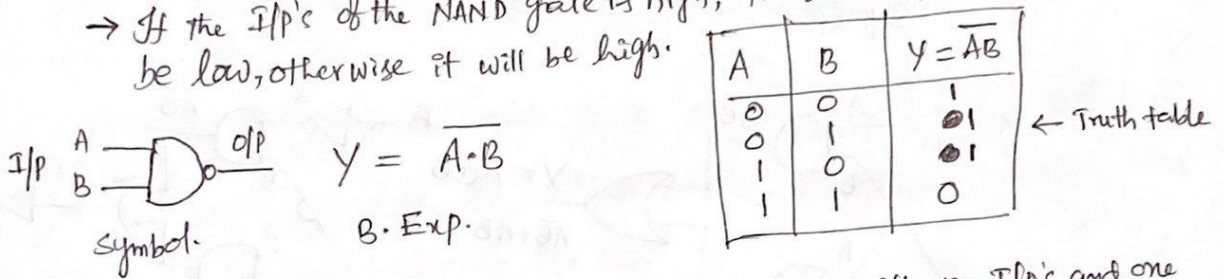 → If the I/p's of the NAND gate is high,
be low, otherwise it will be high.
I/p A B O/p
symbol.
Y = \overline{A·B}
B. Exp.
A B Y = \overline{AB}
0 0 1
0 1 1
1 0 1
1 1 0
← Truth table
I/p's and one